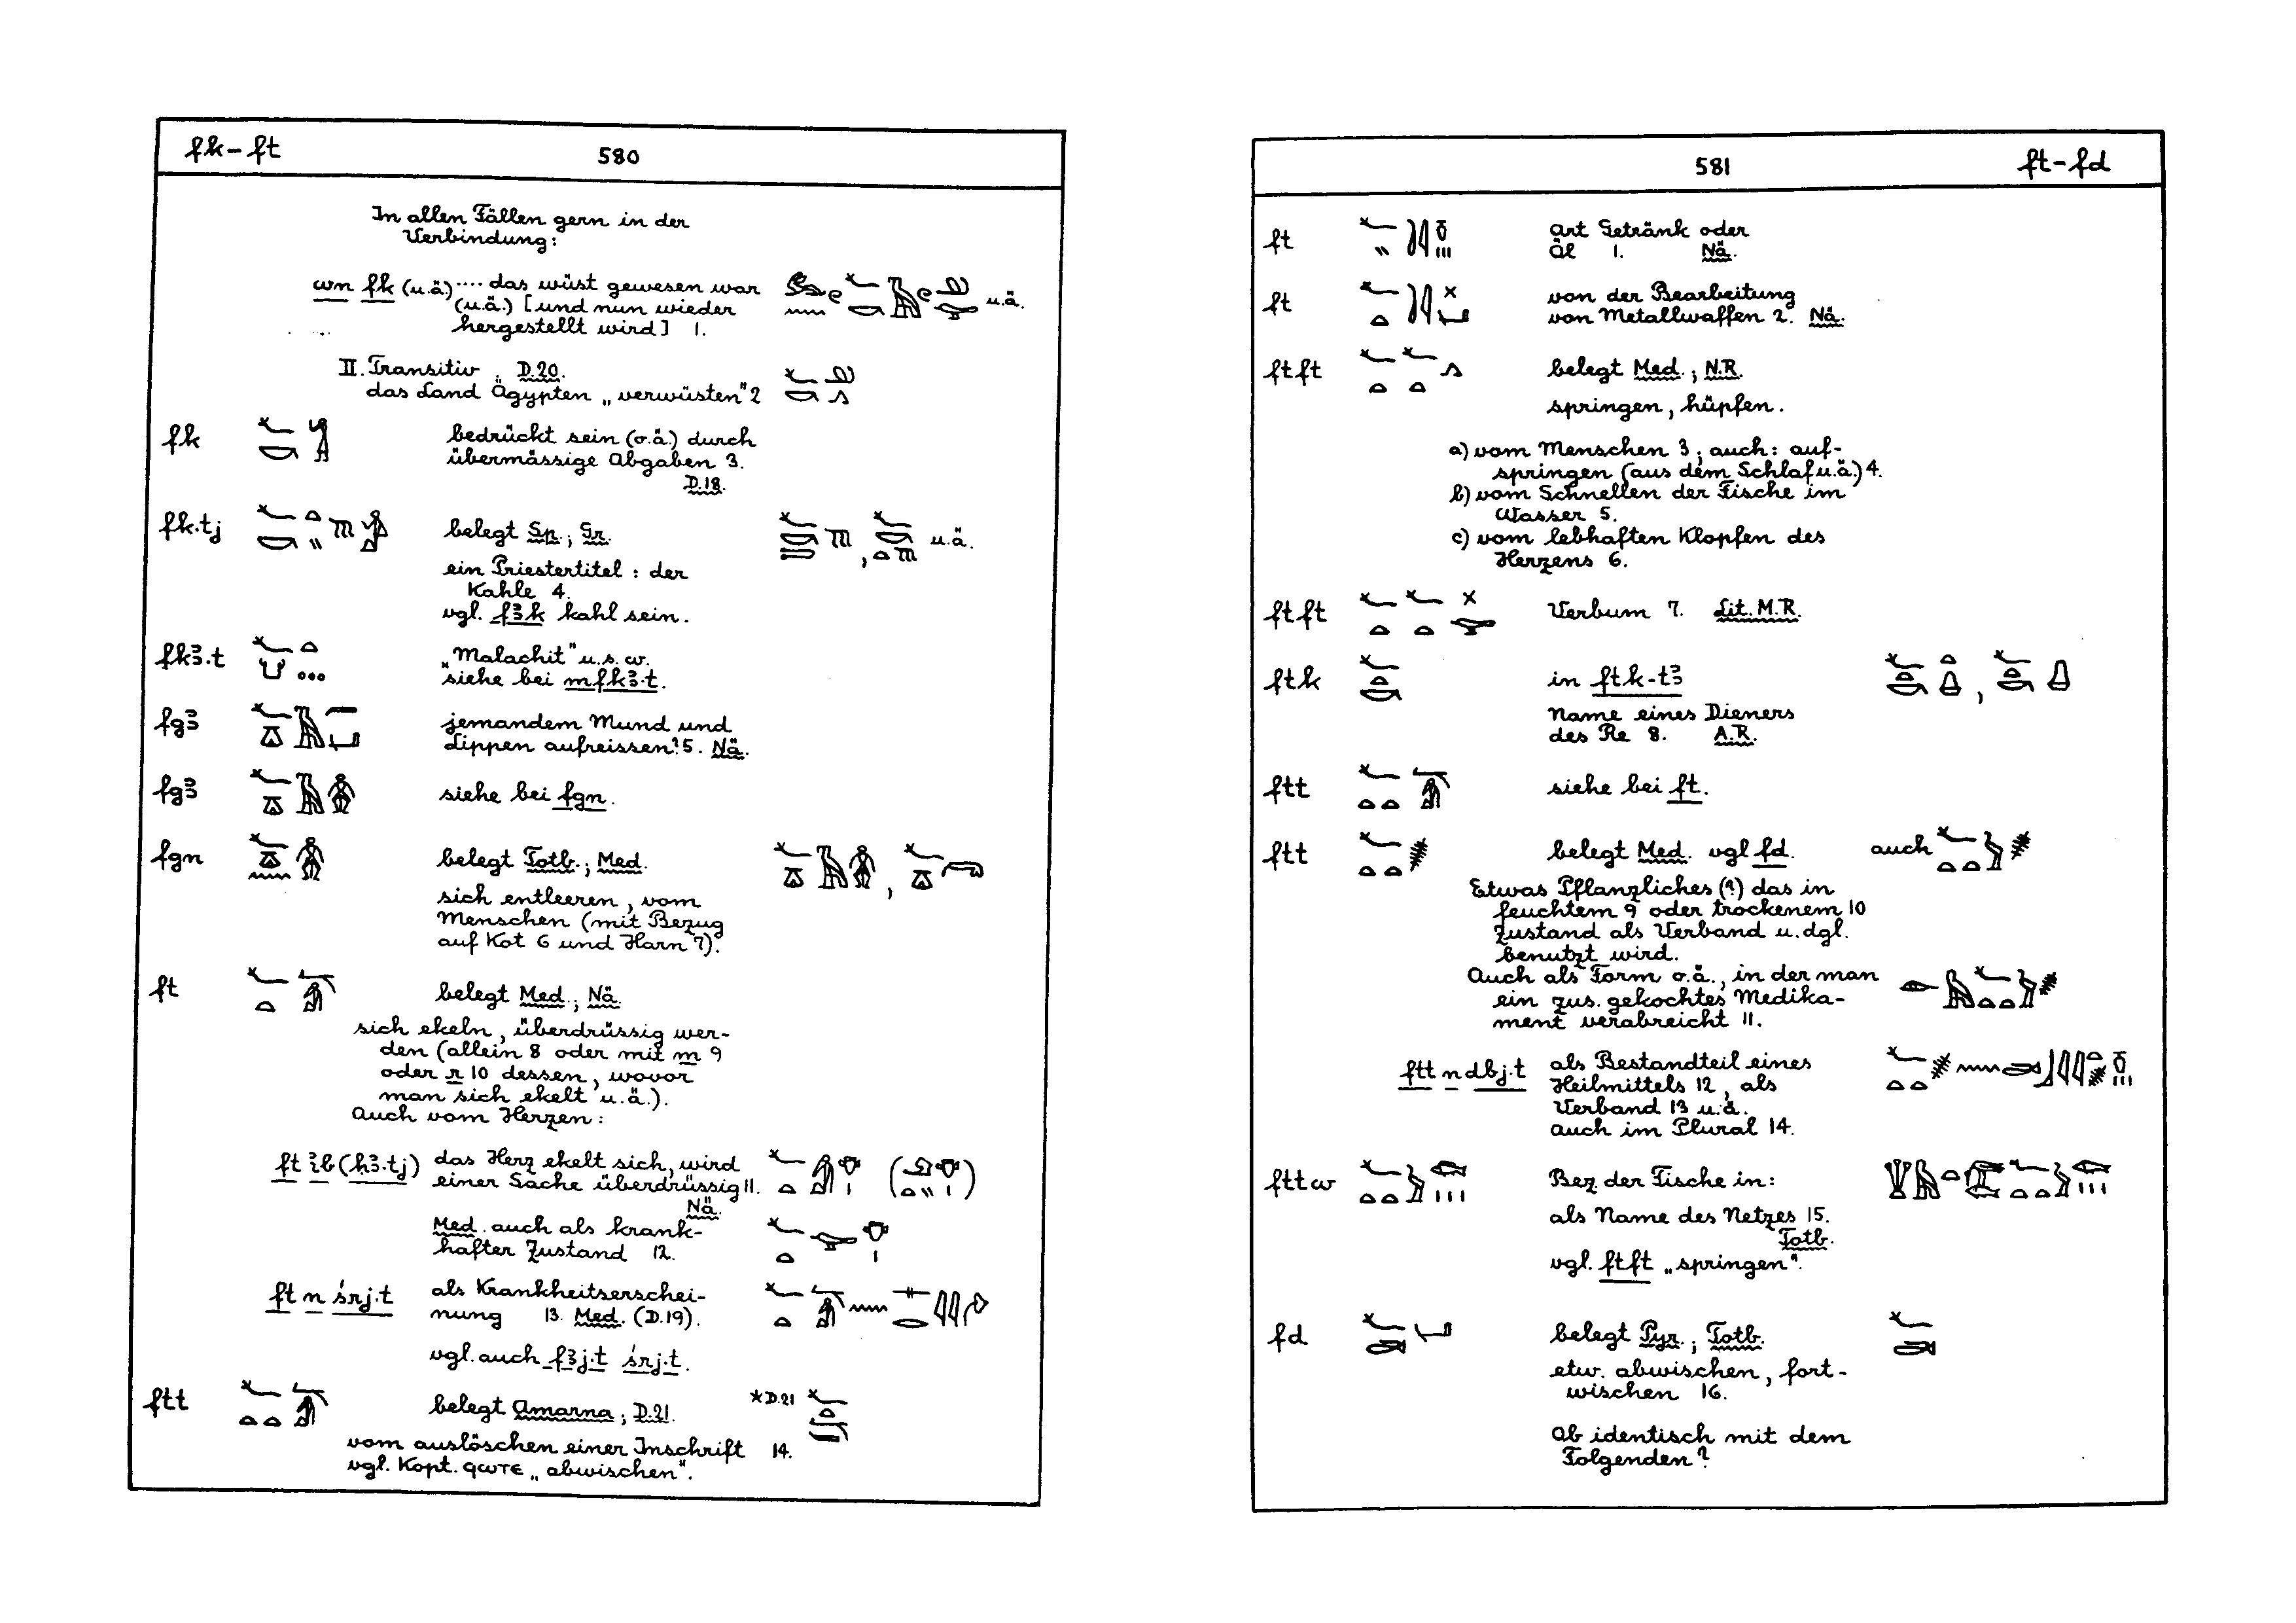 fk-ft
580
In allen Fällen gern in der
Verbindung:
wn fk (u.ä.) .... das wüst gewesen war u.ä.
(u.ä.) [und nun wieder
hergestellt wird] 1.
II. Transitiv. D.20.
das Land Ägypten „verwüsten" 2
fk bedrückt sein (o.ä.) durch
übermässige Abgaben 3.
D.18.
fk·tj belegt Sp.; Gr. , u.ä.
ein Priestertitel: der
Kahle 4.
vgl. fꜣk kahl sein.
fkꜣ·t „Malachit" u.s.w.
siehe bei mfkꜣ·t.
fgꜣ jemandem Mund und
Lippen aufreissen? 5. Nä.
fgꜣ siehe bei fgn.
fgn belegt Totb.; Med. ,
sich entleeren, vom
Menschen (mit Bezug
auf Kot 6 und Harn 7).
ft belegt Med.; Nä.
sich ekeln, überdrüssig wer-
den (allein 8 oder mit m 9
oder r 10 dessen, wovor
man sich ekelt u.ä.).
Auch vom Herzen:
ft ꞽb (ḥꜣ·tj) das Herz ekelt sich, wird
einer Sache überdrüssig 11.
Nä.
Med. auch als krank-
hafter Zustand 12.
ft n śrj·t als Krankheitserschei-
nung 13. Med. (D.19).
vgl. auch fꜣj·t śrj·t.
ftt belegt Amarna; D.21. *D.21
vom auslöschen einer Inschrift 14.
vgl. Kopt. ϥⲱⲧⲉ „abwischen".
581
ft-fd
ft Art Getränk oder
Öl 1. Nä.
ft von der Bearbeitung
von Metallwaffen 2. Nä.
ftft belegt Med.; N.R.
springen, hüpfen.
a) vom Menschen 3; auch: auf-
springen (aus dem Schlaf u.ä.) 4.
b) vom Schnellen der Fische im
Wasser 5.
c) vom lebhaften Klopfen des
Herzens 6.
ftft Verbum 7. Lit. M.R.
ftk in ftk-tꜣ ,
Name eines Dieners
des Re 8. A.R.
ftt siehe bei ft.
ftt belegt Med. vgl fd. auch
Etwas Pflanzliches (?) das in
feuchtem 9 oder trockenem 10
Zustand als Verband u.dgl.
benutzt wird.
Auch als Form o.ä., in der man
ein zus. gekochtes Medika-
ment verabreicht 11.
ftt n dbj·t als Bestandteil eines
Heilmittels 12, als
Verband 13 u.ä.
auch im Plural 14.
fttw Bez. der Fische in:
als Name des Netzes 15.
Totb.
vgl. ftft „springen".
fd belegt Pyr.; Totb.
etw. abwischen, fort-
wischen 16.
Ob identisch mit dem
Folgenden?